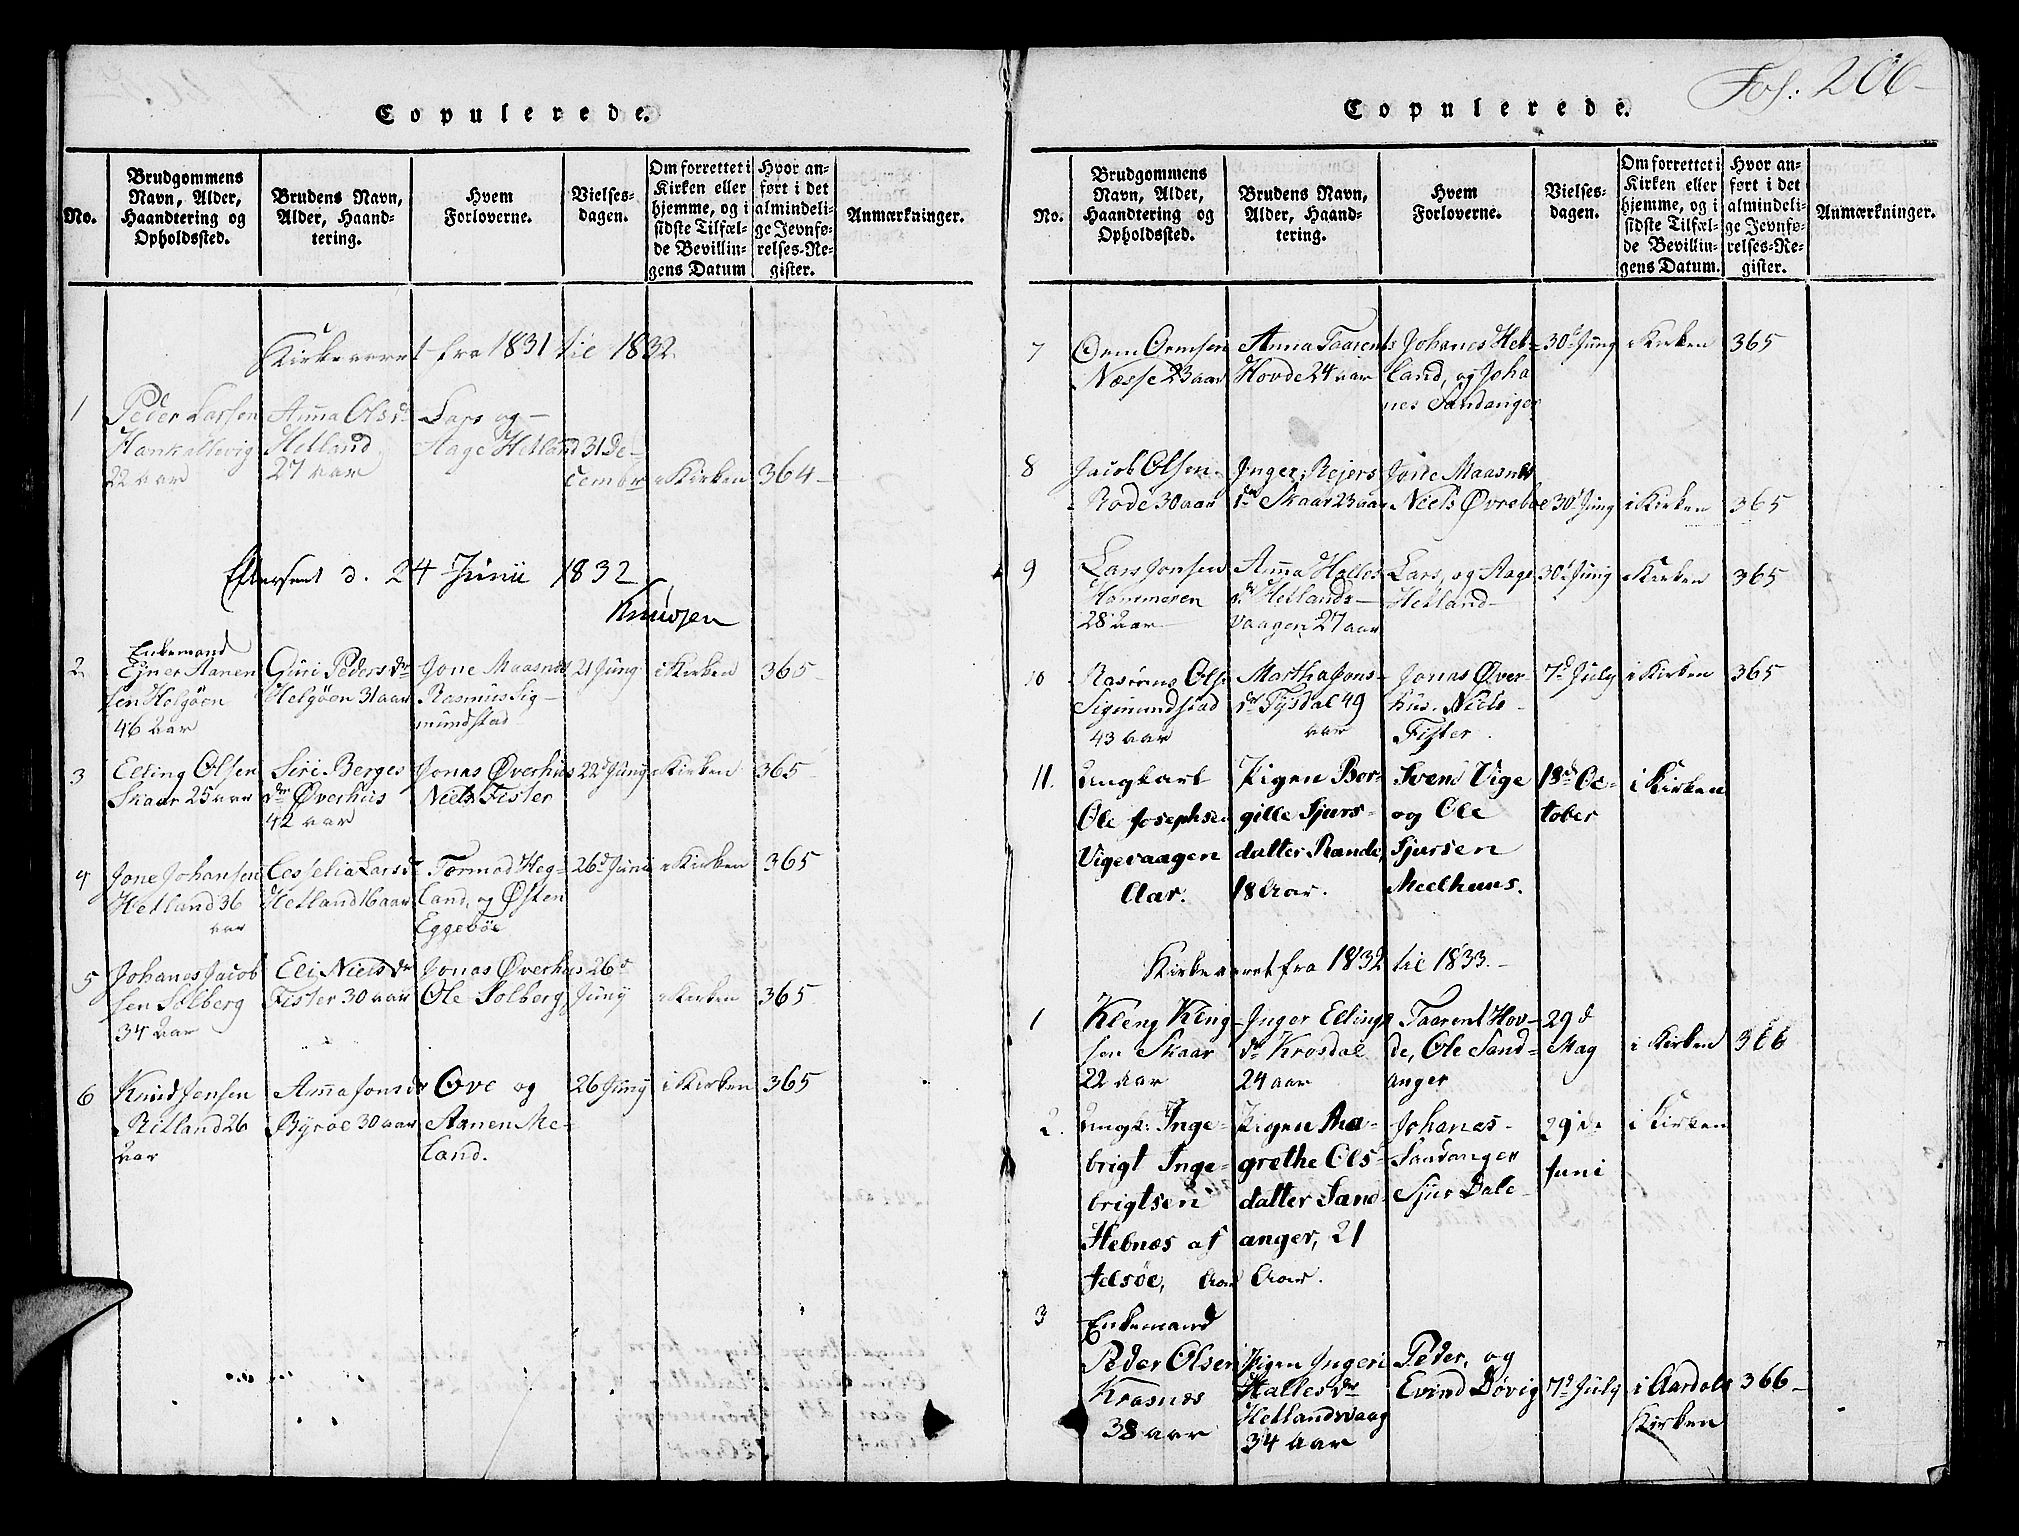 Copulerede.
No.
Brudgommens
Navn, Alder,
Haandtering og
Opholdssted.
Brudens Navn,
Alder, Haand-
tering.
Hvem
Forloverne.
Vielses-
dagen.
Om forrettet i
Kirken eller
hjemme, og i
sidste Tilfæl-
de Bevillin-
gens Datum
Hvor an-
ført i det
almindeli-
ge Jevnfø-
relses-Re-
gister.
Anmærkninger.
Kirkeaaret fra 1831 til 1832
1
Peder Larsen
22 aar
Anna Ols dr
Hetland
27 aar
Lars og
Aage Hetland
31 De-
cembr
i Kirken
364
Efterseet d. 24 Junii 1832
Knudsen
2
Enkemand
Ejner Aanen
sen Helgøen
46 aar
Guri Peders dr
Helgøen 31 aar
Jone Maasnes
Rasmus Sig-
mundstad
21 Juny
i Kirken
365
3
Elling Olsen
Skaar 25 aar
Siri Berges
dr Øverhus
42 aar
Jonas Øverhus
Niels Fister
22d Juny
i Kirken
365
4
Jone Johansen
Hetland 36
aar
Cesselia Lars d
Hetland 16 aar
Tormod Heg-
land, og Østen
Eggebøe
26d Juni
i Kirken
365
5
Johanes Jacob
sen Solberg
34 aar
Eli Niels dr
Fister 30 aar
Jonas Øverhus
Ole Solberg
26d
Juny
i Kirken
365
6
Knud Jensen
Ritland 26
aar
Anna Jons dr
Byrøe 30 aar
Ove og
Aanen Me-
land.
26 Juny
i Kirken
365
Fol: 206
Copulerede.
No.
Brudgommens
Navn, Alder,
Haandtering og
Opholdssted.
Brudens Navn,
Alder, Haand-
tering.
Hvem
Forloverne.
Vielses-
dagen.
Om forrettet i
Kirken eller
hjemme, og i
sidste Tilfæl-
de Bevillin-
gens Datum.
Hvor an-
ført i det
almindeli-
ge Jevnfø-
relses-Re-
gister.
Anmærkninger.
7
Orm Ormsen
Næsse 23 aar
Anna Taarents
Hovde 24 aar
Johanes Het-
land, og Joha
nes Sandanger
30d Juny
i Kirken
365
8
Jacob Olsen
Rode 30 aar
Inger Rejers
dr Skaar 23 aar
Jone Maasnes
Niels Øvrebøe
30d Juny
i Kirken
365
9
Lars Jonsen
28 aar
Anna Halles
dr Hetlands-
vaagen 27 aar
Lars, og Aage
Hetland
30d Juny
i Kirken
365
10
Rasmus Ols
Sigmundstad
43 aar
Martha Jons-
dr Tysdal 49
aar
Jonas Øver-
hus. Niels
Fister.
7d July
i Kirken
365
11.
Ungkarl
Ole Josephsen
Vigevaagen
Aar.
Pigen Bor-
gille Sjurs-
datter Rande,
18 Aar.
Svend Vige
og Ole
Sjursen
Meelhuus.
18d Oc-
tober
i Kirken
Kirkeaaret fra 1832 til 1833.
1
Kleng Kleng-
sen Skaar
22 aar
Inger Ellings
dr Krosdal
24 aar
Taarent Hov-
de, Ole Sand-
anger
29d
May
i Kirken
366
2.
Ungk: Inge-
brigt Inge-
brigtsen
Hebnæs af
Jelsøe, Aar
Pigen Ma-
grethe Ols-
datter Sand-
anger, 21
Aar.
Johanes
Sandanger
Sjur Dale
29de
Juni
i Kirken
3
Enkemand
Peder Olsen
Krasnæs
38 aar
Pigen Ingeri
Halles dr
Hetlandsvaag
34 aar
Peder, og
Evind Døvig
7d July
i Aardals
Kirken
366